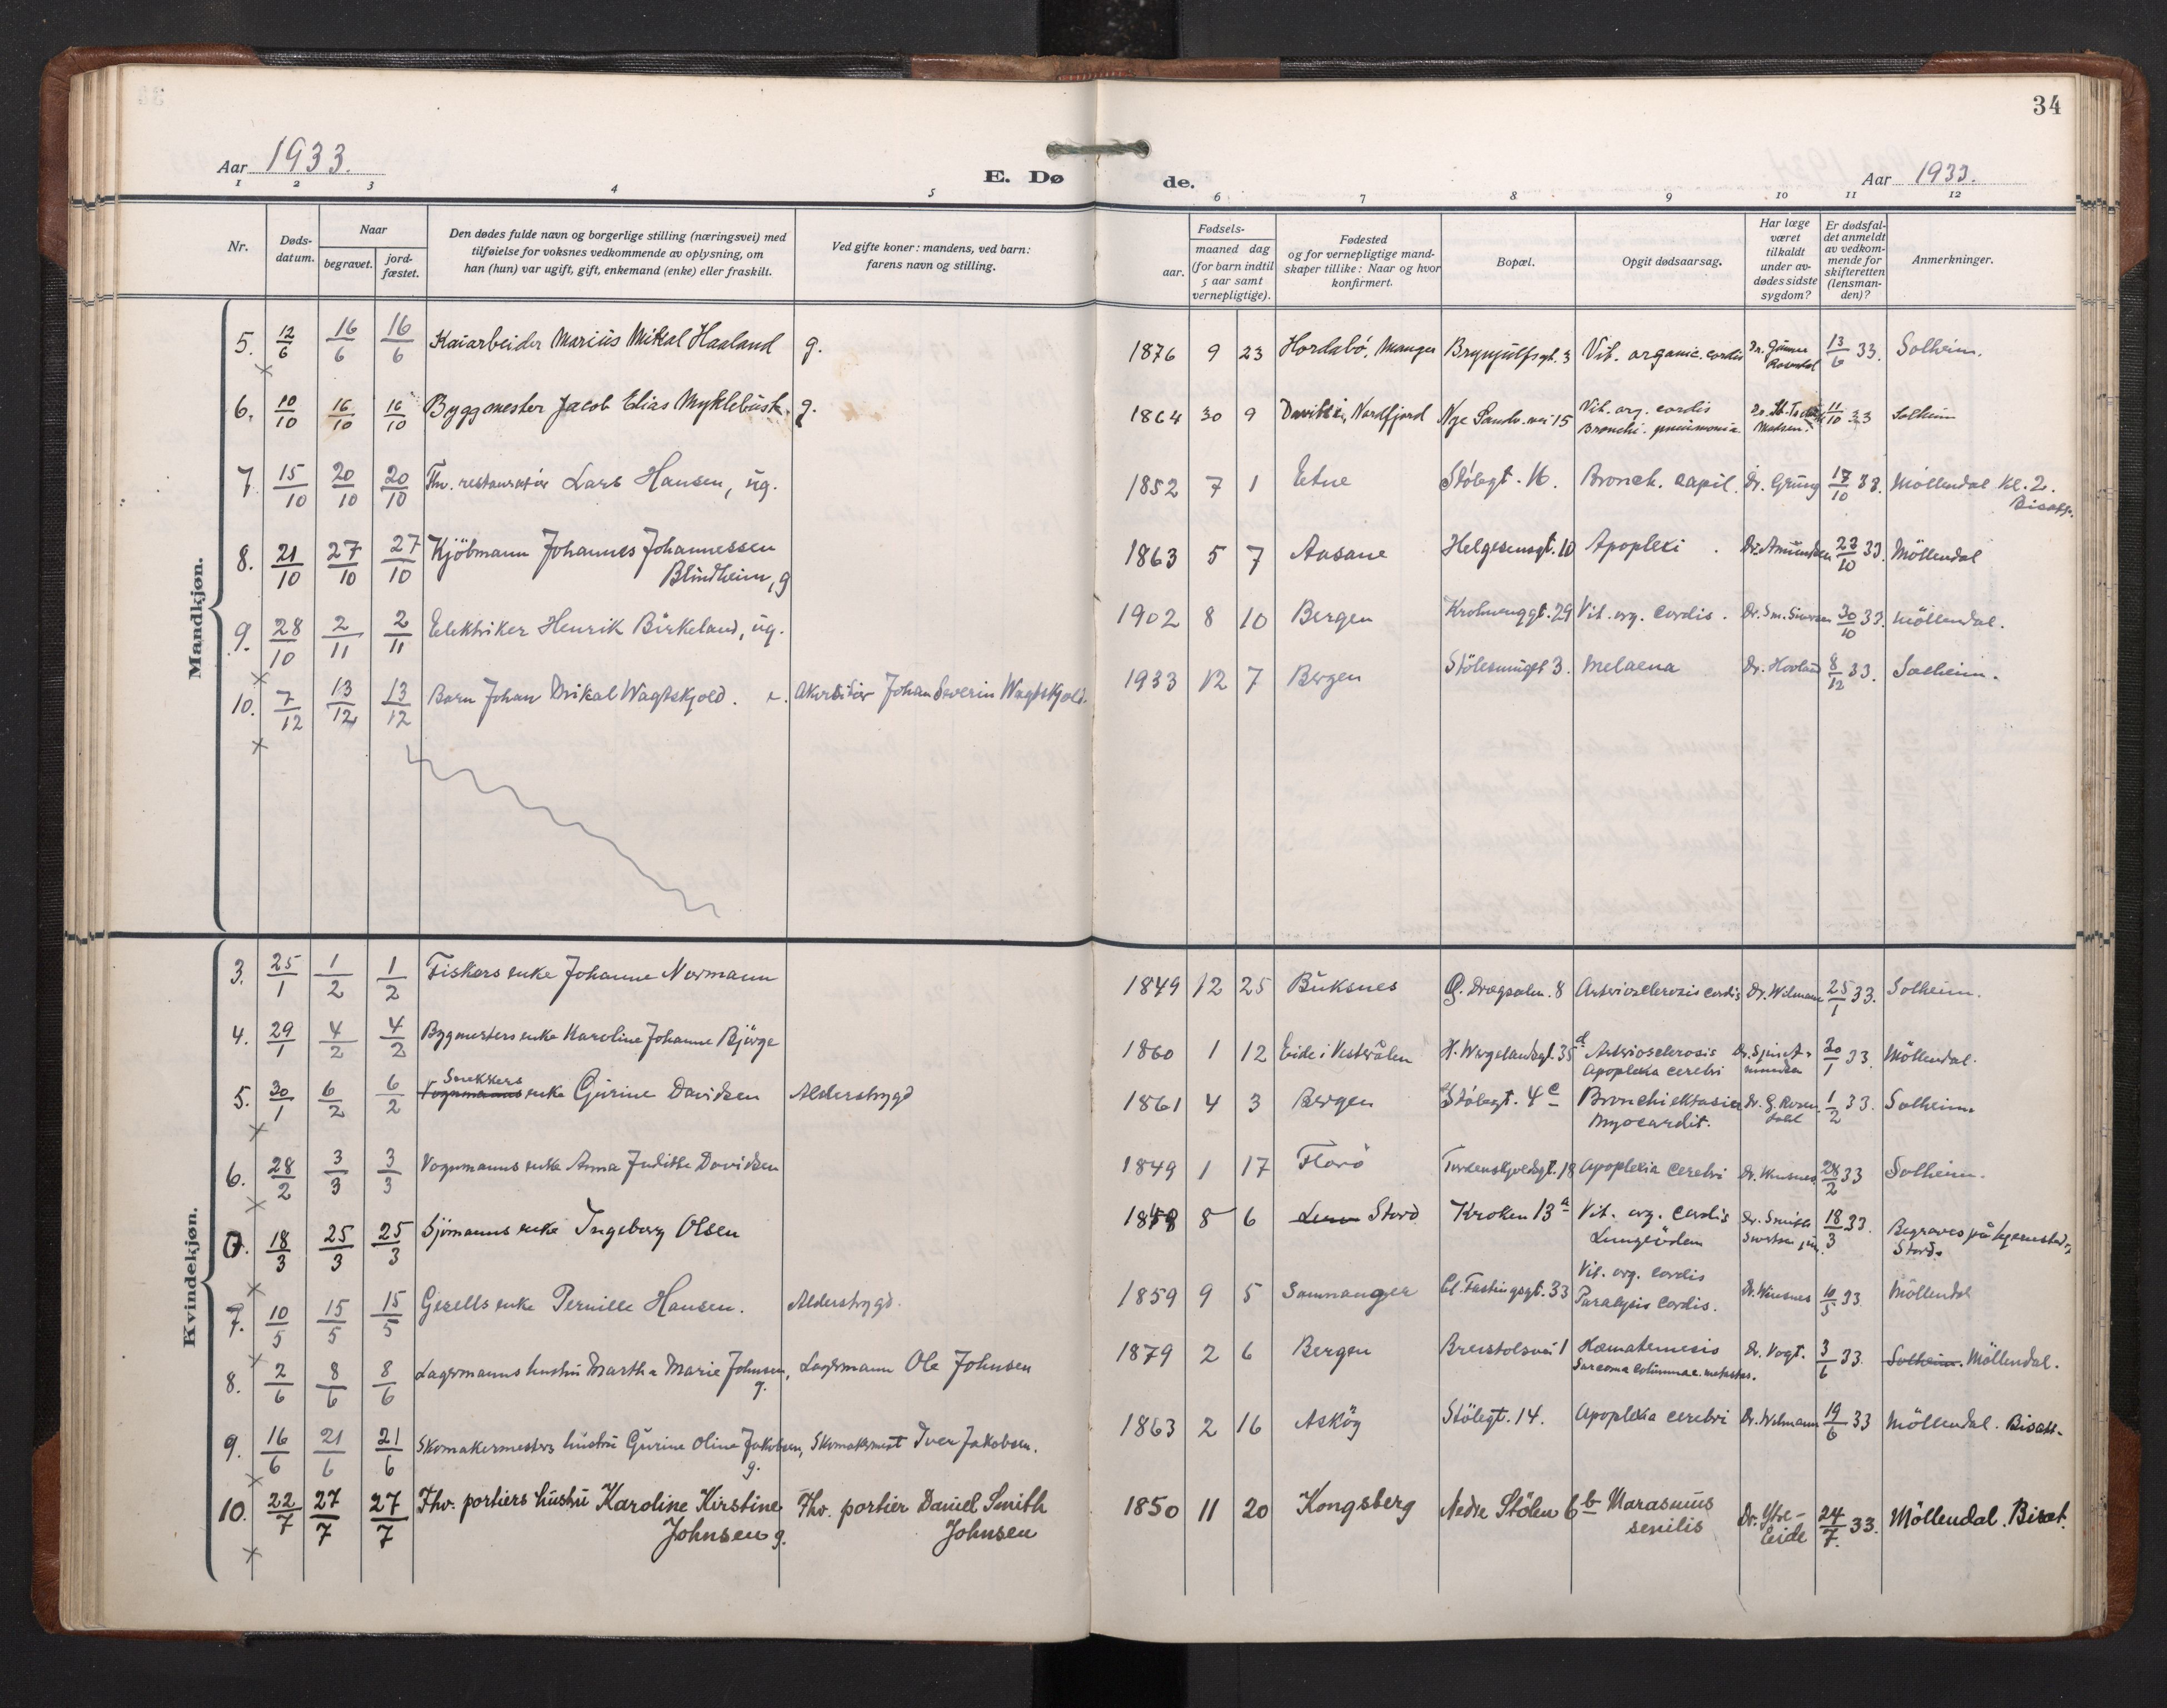 34
Aar 1933.
E. Døde.
Aar 1933.
1 2 3 4 5 6 7 8 9 10 11 12
Nr.
Døds-datum.
Naar
begravet.
jord-fæstet.
Den dødes fulde navn og borgerlige stilling (næringsvei) med
tilføielse for voksnes vedkommende av oplysning, om
han (hun) var ugift, gift, enkemand (enke) eller fraskilt.
Ved gifte koner: mandens, ved barn:
farens navn og stilling.
Fødsels-
aar.
maaned dag
(for barn indtil
5 aar samt
vernepligtige).
Fødested
og for vernepligtige mand-
skaper tillike: Naar og hvor
konfirmert.
Bopæl.
Opgit dødsaarsag.
Har læge
været
tilkaldt
under av-
dødes sidste
sygdom?
Er dødsfal-
det anmeldt
av vedkom-
mende for
skifteretten
(lensman-
den)?
Anmerkninger.
Mandkjøn.
5. 12/6 16/6 16/6 Kaiarbeider Marius Mikal Haaland g. 1876 9 23 Hordabö, Manger Brynjulfsgt. 3 Vit. organic. cordis Dr. Gunnar Rosendal 13/6 33. Solheim.
6. 10/10 16/10 16/10 Byggmester Jacob Elias Myklebust g. 1864 30 9 Nordfjord Nye Sandv.vei 15 Vit. org. cordis
Bronchi. pneumonia Dr. Madsen 11/10 33 Solheim
7. 15/10 20/10 20/10 Fhv. restauratör Lars Hansen, ug. 1852 7 1 Etne Stölegt. 16. Bronch. capil. Dr. Grung 17/10 33. Möllendal kl. 2.
Bisatt.
8. 21/10 27/10 27/10 Kjöbmann Johannes Johannessen
Blindheim, g 1863 5 7 Aasane Helgesensgt. 10 Apoplexi Dr. Amundsen 23/10 33 Möllendal
9. 28/10 2/11 2/11 Elektriker Henrik Birkeland, ug. 1902 8 10 Bergen Krohnenggt. 29 Vit. org. cordis. Dr. Sm. Sivertsen 30/10 33. Möllendal.
10. 7/12 13/12 13/12 Barn Johan Mikal Wagtskjold. e. Akvisitör Johan Severin Wagtskjold. 1933 12 7 Bergen Stölesmuget 3. Melaena Dr. Hovland 8/12 33. Solheim.
Kvindekjøn.
3. 25/1 1/2 1/2 Fiskers enke Johanne Normann 1849 12 25 Buksnes Ö. Dregsalm. 8 Arteriosclerosis cordis Dr. Wilmann 25/1 33. Solheim.
4. 29/1 4/2 4/2 Bygmesters enke Karoline Johanne Bjørge 1860 1 12 Eide i Vesterålen H. Wergelandsgt. 35 d Arteriosclerosis
Apoplexia cerebri 30/1 33 Möllendal.
5. 30/1 6/2 6/2 Snekkers
Vognmanns enke Gurine Davidsen Alderstrygd 1861 4 3 Bergen Stölegt. 4 c Bronchiektasia
Myocardit. Dr. G. Rosendahl 1/2 33. Solheim
6. 28/2 3/3 3/3 Vognmanns enke Anna Judithe Davidsen 1849 1 17 Florö Tordenskjoldsgt. 18 Apoplexia cerebri Dr. Winsnes 28/2 33 Solheim.
7. 18/3 25/3 25/3 Sjömanns enke Ingeborg Olsen 1848 8 6 Stord Kroken 13 a Vit. org. cordis
Lungeödem Dr. Smith Sivertsen jun. 18/3 33. Begraves på hjemstedet
Stord.
7. 10/5 15/5 15/5 Gesells enke Pernille Hansen. Alderstrygd. 1859 9 5 Samnanger Cl. Fastingsgt. 33 Vit. org. cordis
Paralysis cordis. Dr. Winsnes 10/5 33. Möllendal
8. 2/6 8/6 8/6 Lagermanns hustru Martha Marie Johnsen, g. Lagermann Ole Johnsen 1879 2 6 Bergen Breistölsvei 1 Hæmatemesis
Sarcoma columnae. metastas. Dr. Vogt. 3/6 33. Solheim. Möllendal.
9. 16/6 21/6 21/6 Skomakermesters hustru Gurine Oline Jakobsen, g. Skomakermest Iver Jakobsen. 1863 2 16 Asköy Stölegt. 14. Apoplexia cerebri Dr. Wilmann 19/6 33 Möllendal. Bisatt.
10. 22/7 27/7 27/7 Fhv. portiers hustru Karoline Kirstine
Johnsen g. Fhv. portier Daniel Smith
Johnsen 1850 11 20 Kongsberg Nedre Stölen 6 b Marasmus
senilis Dr. Ytre-Eide 24/7. 33. Möllendal. Bisat.